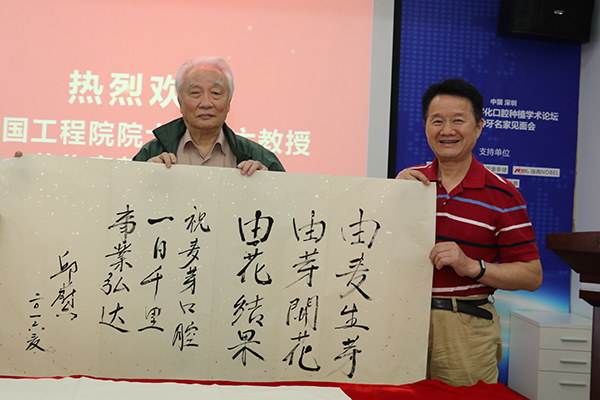 热烈欢
国工程院院
教授
中国 深圳
化口腔种植学术论坛
牙名家见面会
支持单位
瑞典NOBEL
由麦生芽
由芽開花
由花结果
祝麦芽口腔
一日千里
事業弘达
邱蔚六
二〇一六夏